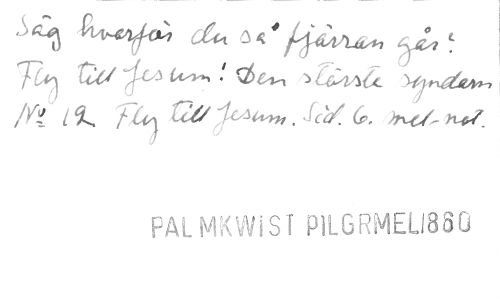 Säg hvarför du så fjärran går?
Fly till Jesum! Den störste syndaren
No 12 Fly till Jesum. Sid. 6. mel-not.
PALMKWIST PILGRMEL1860